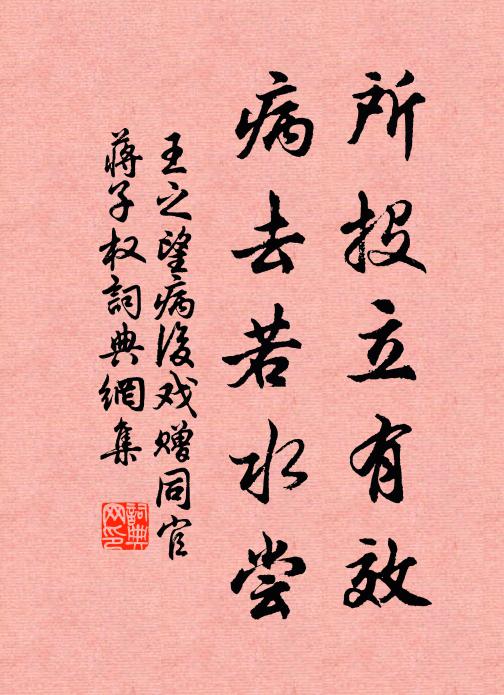 所投立有效
病去若水尝
王之望病后戏赠同官
蒋子权詞典網集
詞典网印